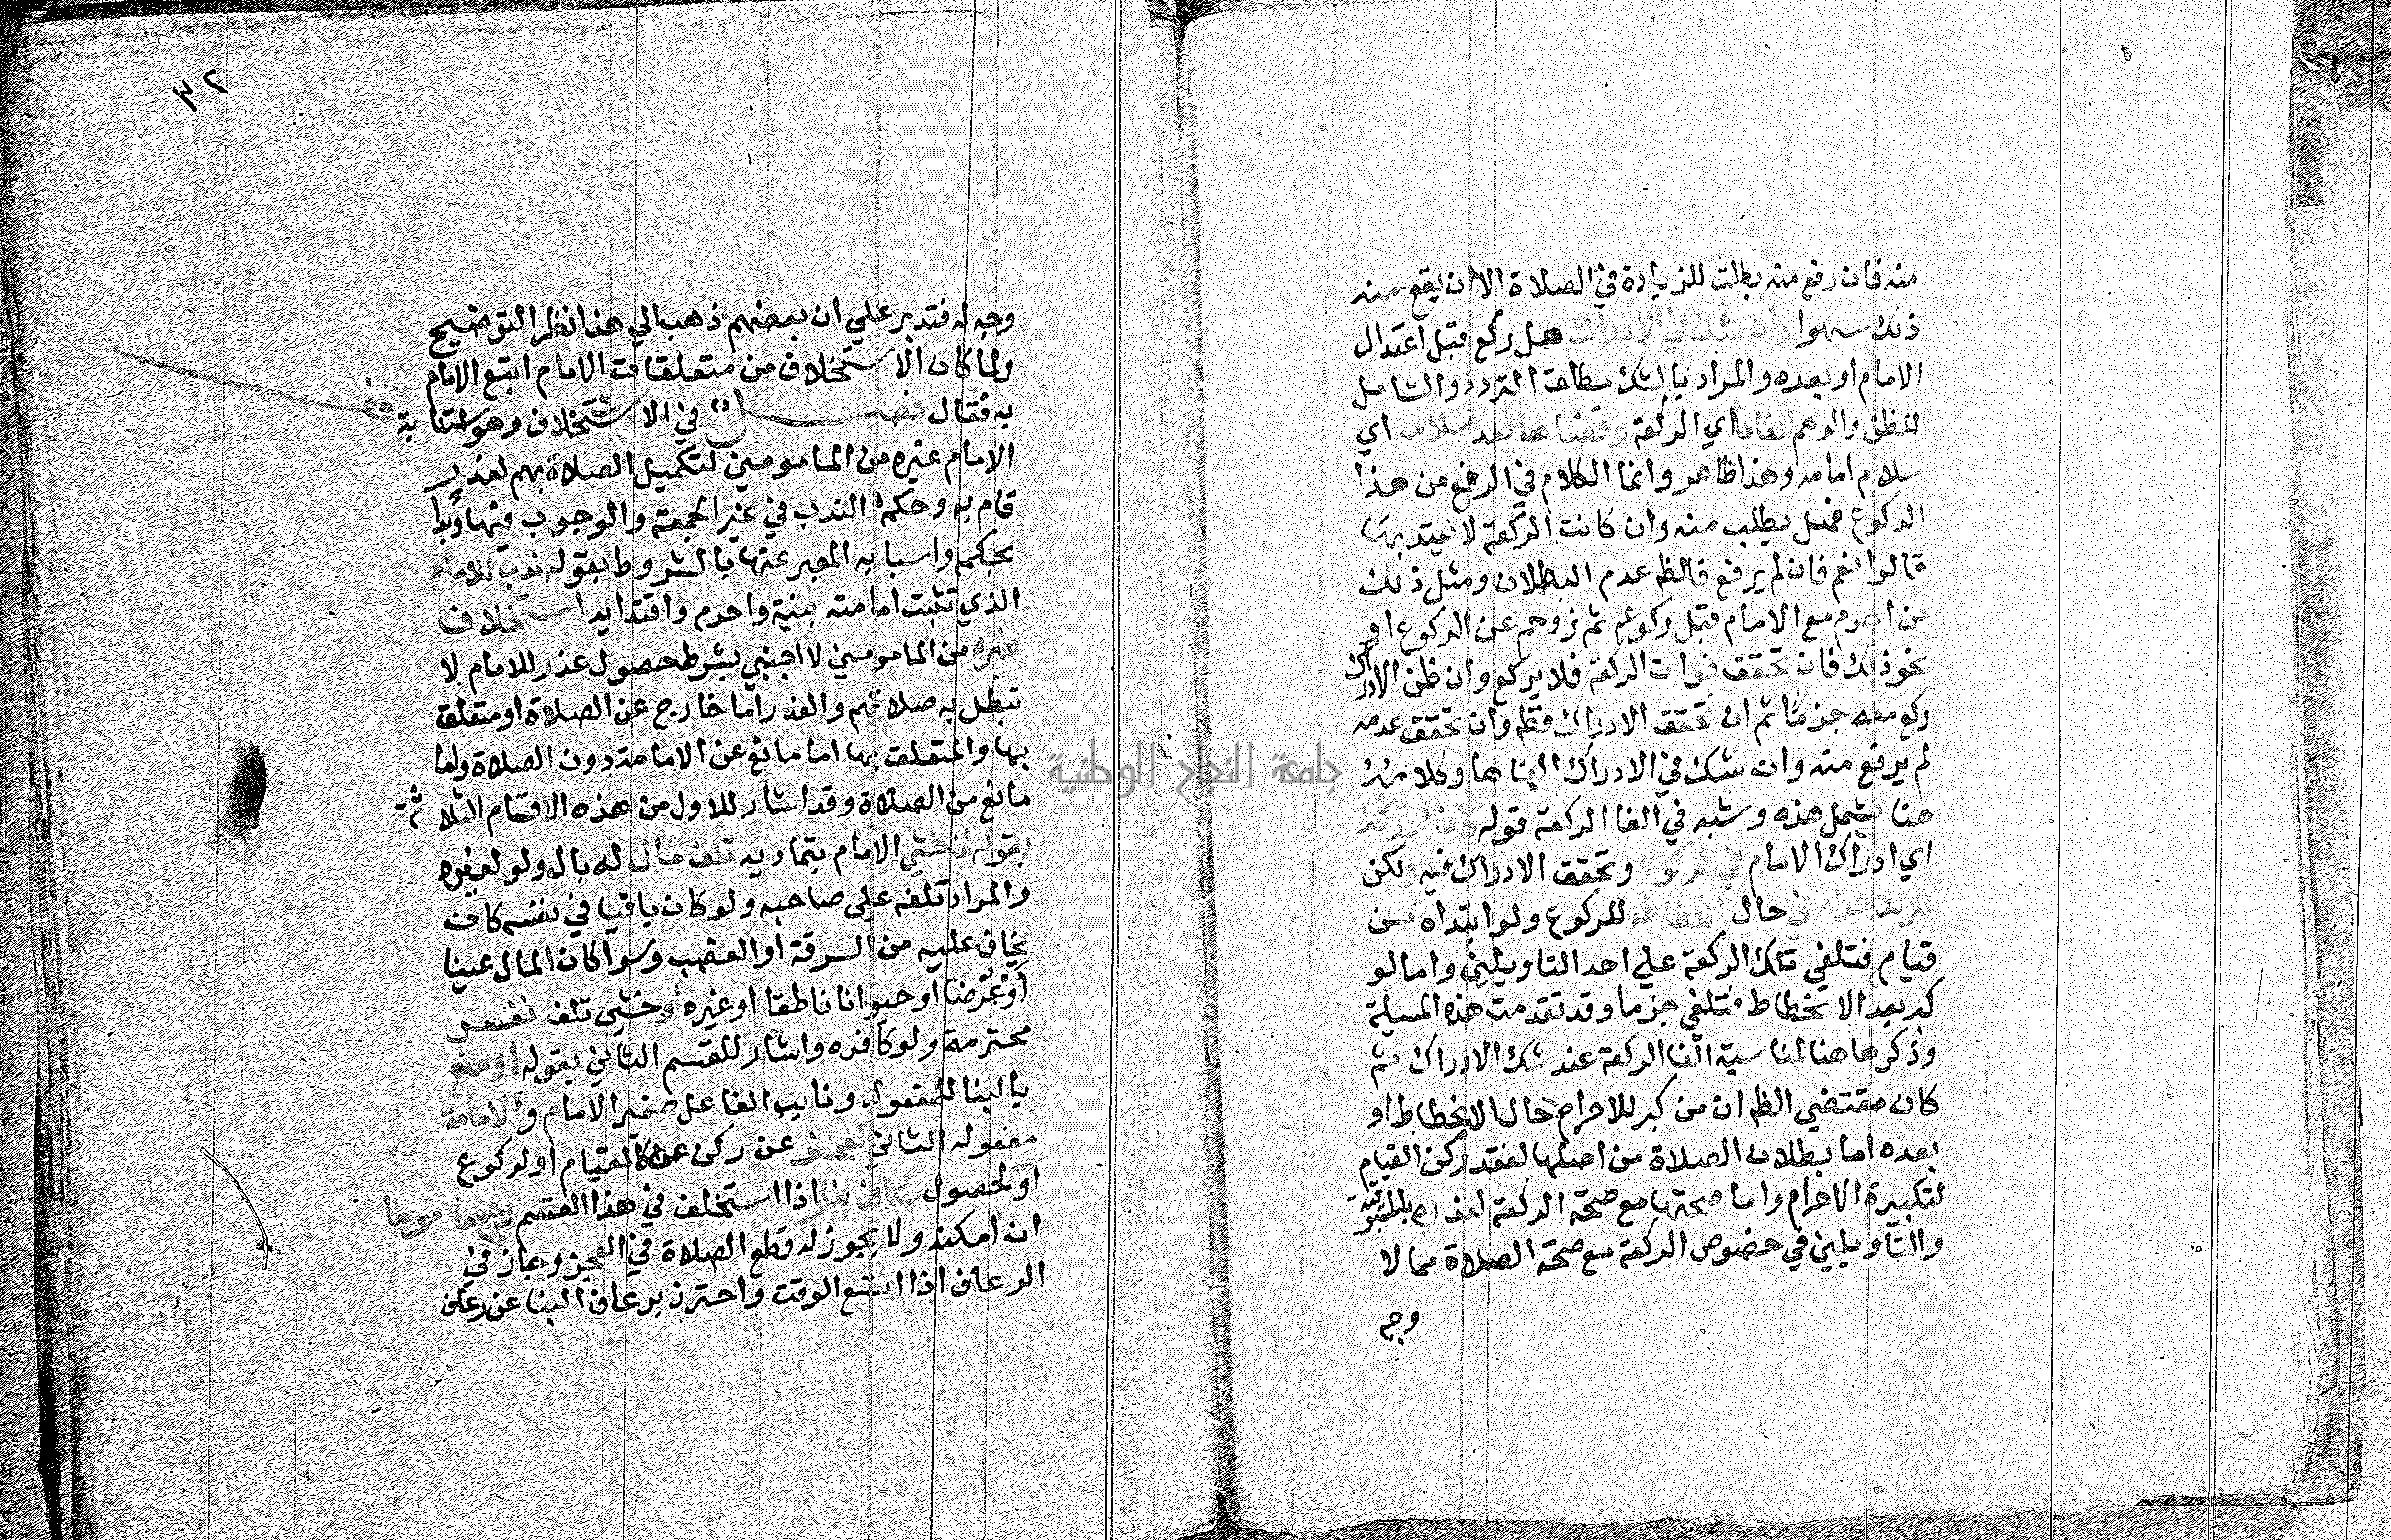 منه فان رفع منه بطلت للزيادة في الصلاة الا ان يقع منه
ذلك سهوا وان شك في الادراك هل ركع قبل اعتدال
الامام او بعده والمراد بالشك مطلق التردد والشامل
للظن والوهم الغاها اي الركعة وقضاها بعد سلامه اي
سلام امامه وهذا ظاهر وانما الكلام في الرفع من هذا
الركوع فهل يطلب منه وان كانت الركعة لا يعتد بها
قالوا نعم فان لم يرفع فالظم عدم البطلان ومثل ذلك
من احرم مع الامام قبل ركوعه ثم زوحم عن الركوع او
نحو ذلك فان تحقق فوات الركعة فلا يركع وان ظن الادراك
ركع معه جزما ثم ان تحقق الادراك فظم وان تحقق عدمه
لم يرفع منه وان شك في الادراك الغاها وكلامه
هنا يشمل هذه وشبه في الغا الركعة قوله كان ادركه
اي ادراك الامام في الركوع وتحقق الادراك فيه ولكن
كبر للاحرام في حال انحطاطه للركوع ولو ابتداه من
قيام فتلغي تلك الركعة علي احد التاويلين واما لو
كبر بعد الانحطاط فتلغي جزما وقد تقدمت هذه المسيلة
وذكرها هنا لمناسبة الغا الركعة عند شك الادراك ثم
كان مقتضي الظم ان من كبر للاحرام حال الانحطاط او
بعده اما بطلان الصلاة من اصلها لفقد ركن القيام
لتكبيرة الاحرام واما صحتها مع صحة الركعة لعذره بالمسبوقية
والتاويلين في خصوص الركعة مع صحة الصلاة مما لا
وجه
٣٢
وجه له فتدبر علي ان بعضهم ذهب الي هذا نظر التوضيح
ولما كان الاستخلاف من متعلقات الامام اتبع الامام
به فقال فصل في الاستخلاف وهو استنابة
الامام غيره من المامومين لتكميل الصلاة بهم لعذر
قام به وحكمه الندب في غير الجمعة والوجوب فيها وبدا
بحكمه واسبابه المعبر عنها بالشروط بقوله ندب للامام
الذي تثبت امامته بنية واحرم واقتدا به استخلاف
غيره من المامومين لا اجنبي بشرط حصول عذر للامام لا
تبطل به صلاتهم والعذر اما خارج عن الصلاة او متعلق
بها والمتعلق بها اما مانع عن الامامة دون الصلاة واما
مانع من الصلاة وقد اشار للاول من هذه الاقسام الثلاثة
بقوله ان خشي الامام بتماديه تلف مال له بال ولو لغيره
والمراد تلفه علي صاحبه ولو كان باقيا في نفسه كان
يخاف عليه من السرقة او الغصب وسوا كان المال عينا
او عرضا او حيوانا ناطقا او غيره او خشي تلف نفس
محترمة ولو كافره واشار للقسم الثاني بقوله او منع
بالبنا للمفعول ونايب الفاعل ضمير الامام والامامة
مفعوله الثاني لعجز عن ركن كالقيام او لركوع
او لحصول رعاف بنا اذا استخلف في هذا القسم رجع ماموما
ان امكنه ولا يجوز له قطع الصلاة في العجز وجاز في
الرعاف اذا اتسع الوقت واحترز برعاف البنا عن رعاف
جامعة النجاح الوطنية